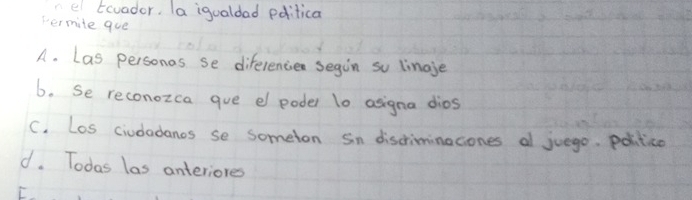 n el Ecuador. la igualdad política
Permite que
A. Las personas se diferencien según su linaje
b. Se reconozca que el poder lo asigna dios
C. Los ciudadanos se someton sn discriminaciones al juego. político
d. Todas las anteriores